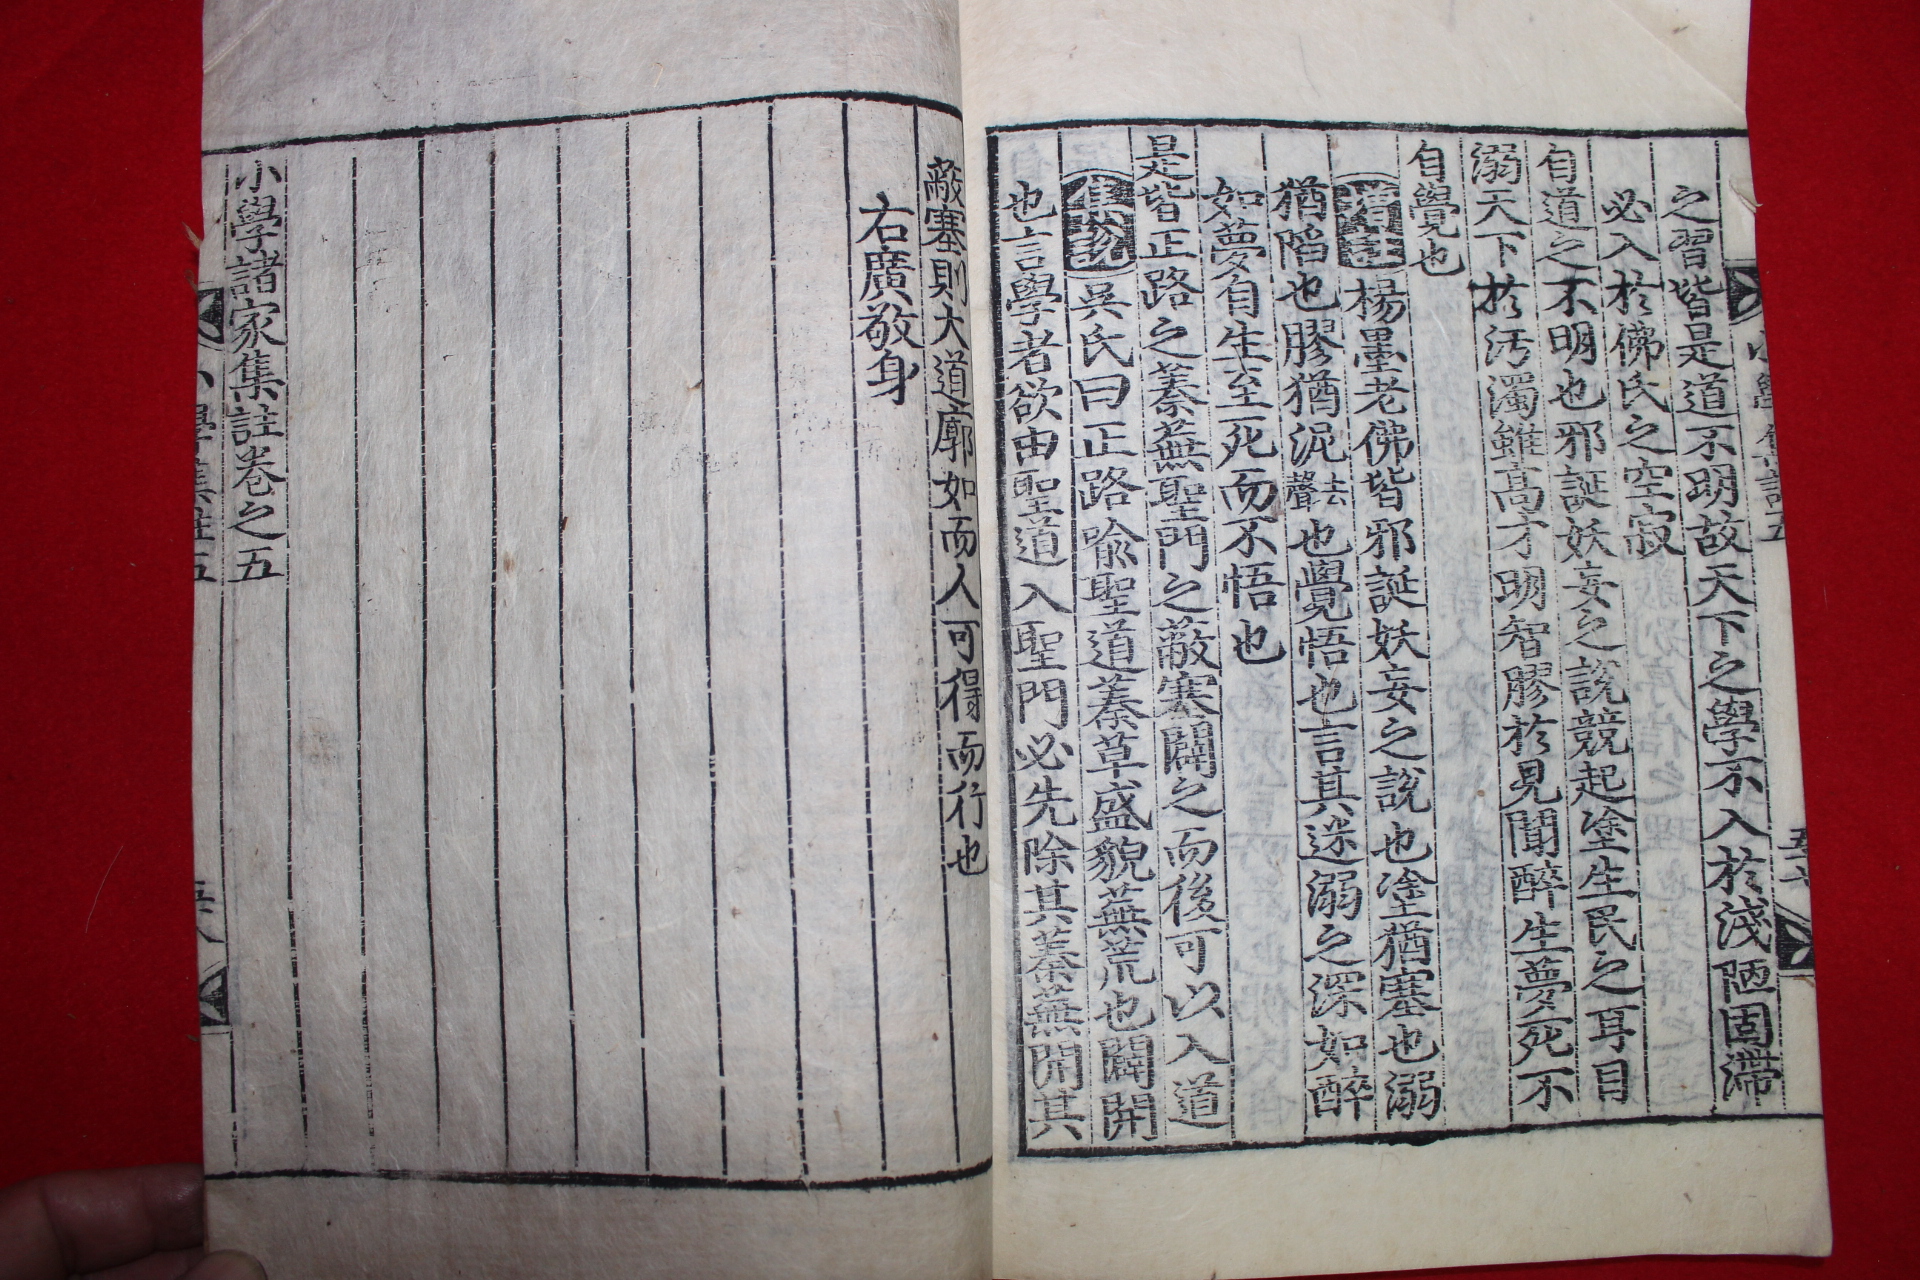 之習皆是道不明故天下之學不入於淺陋固滯
必入於佛氏之空寂
自道之不明也邪誕妖妄之說競起塗生民之耳目
溺天下於汚濁雖高才明智膠於見聞醉生夢死不
自覺也
增註楊墨老佛皆邪誕妖妄之說也塗猶塞也溺
猶陷也膠猶泥去聲也覺悟也言其迷溺之深如醉
如夢自生至死而不悟也
是皆正路之蓁蕪聖門之蔽塞闢之而後可以入道
集說吳氏曰正路喩聖道蓁草盛貌蕪荒也闢開
也言學者欲由聖道入聖門必先除其蓁蕪開其
蔽塞則大道廓如而人可得而行也
右廣敬身
小學諸家集註卷之五
小學集註五